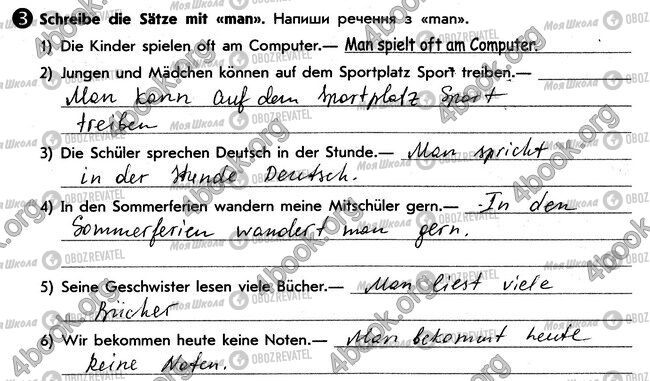 3 Schreibe die Sätze mit «man». Напиши речення з «man».
1) Die Kinder spielen oft am Computer.— Man spielt oft am Computer.
2) Jungen und Mädchen können auf dem Sportplatz Sport treiben.—
Man kann auf dem Sportplatz Sport
treiben
3) Die Schüler sprechen Deutsch in der Stunde.— Man spricht
in der Stunde Deutsch.
4) In den Sommerferien wandern meine Mitschüler gern.— In den
Sommerferien wandert man gern.
5) Seine Geschwister lesen viele Bücher.— Man liest viele
Bücher
6) Wir bekommen heute keine Noten.— Man bekommt heute
keine Noten.